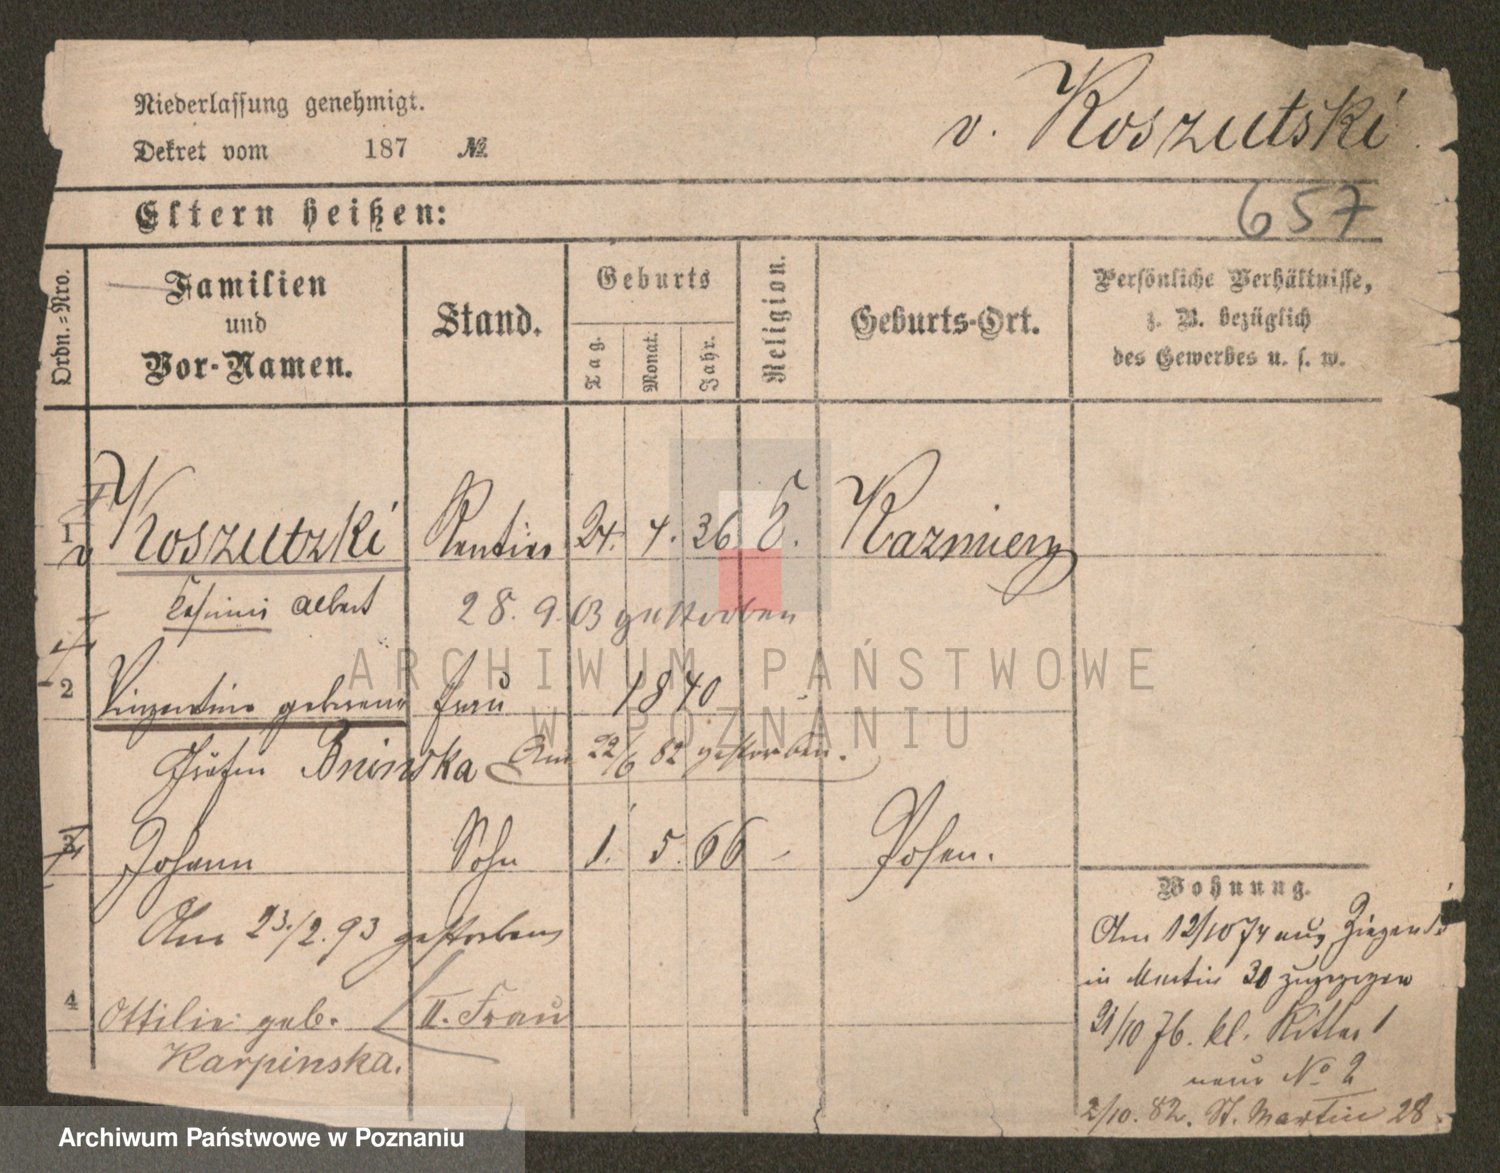 Niederlassung genehmigt.
Dekret vom 187 №
v. Koszutski
Eltern heißen:
657
Ordn.-Nro.
Familien
und
Vor-Namen.
Stand.
Geburts
Tag.
Monat.
Jahr.
Religion.
Geburts-Ort.
Persönliche Verhältnisse,
z. B. bezüglich
des Gewerbes u. s. w.
1 v Koszutzki Rentier 24. 4. 36 Kazmierz
Casimir Albert 28. 9. 03 gestorben
2 Vinzentine geborene Frau 1840
Gräfin Bninska Am 22/6 82 gestorben.
3 Johann Sohn 1. 5. 66 - Posen.
Am 23./2. 93 gestorben
4 Ottilie geb. II. Frau
Karpinska.
Wohnung.
Am 12/10 74 aus
in Martin 30 zugezogen
21/10 76. kl. Ritter 1
neue No 2
2/10. 82. St. Martin 28.
ARCHIWUM PAŃSTWOWE
W POZNANIU
Archiwum Państwowe w Poznaniu